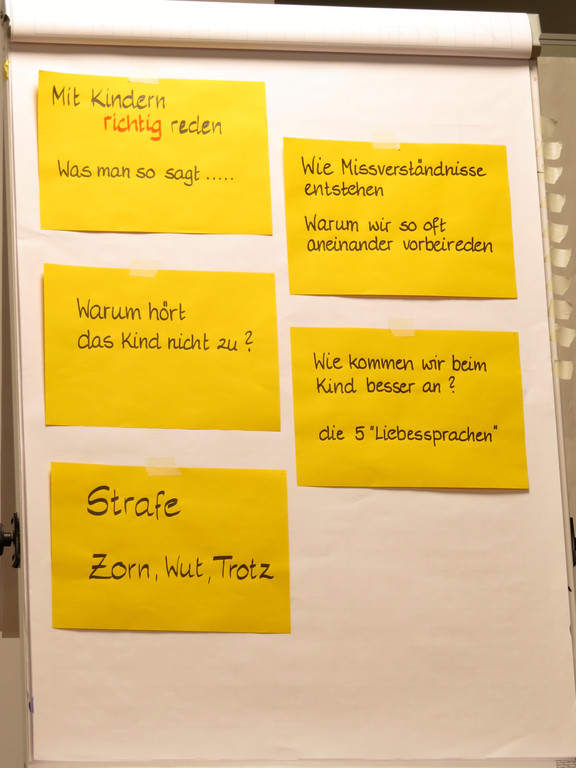 Mit Kindern
richtig reden
Was man so sagt .....
Wie Missverständnisse
entstehen
Warum wir so oft
aneinander vorbeireden
Warum hört
das Kind nicht zu?
Wie kommen wir beim
Kind besser an?
die 5 "Liebessprachen"
Strafe
Zorn, Wut, Trotz